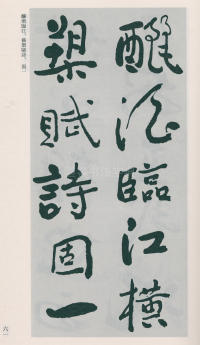 釃酒臨江橫
槊賦詩固一
釃酒臨江,橫槊賦詩,固一
六一